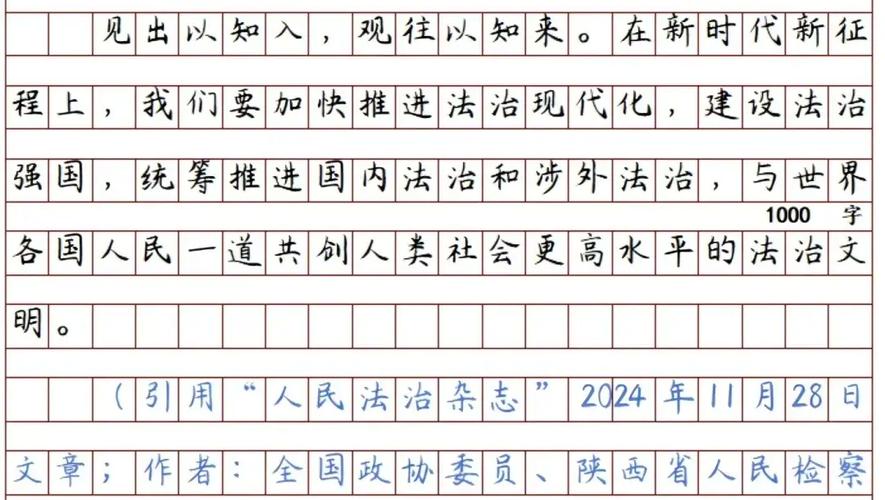 见出以知入，观往以知来。在新时代新征
程上，我们要加快推进法治现代化，建设法治
强国，统筹推进国内法治和涉外法治，与世界
1000 字
各国人民一道共创人类社会更高水平的法治文
明。
（引用“人民法治杂志”2024年11月28日
文章；作者：全国政协委员、陕西省人民检察